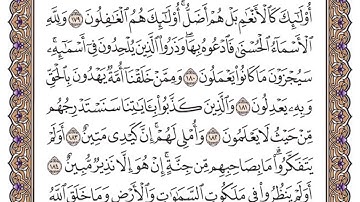 أُوْلَٰٓئِكَ كَٱلْأَنْعَٰمِ بَلْ هُمْ أَضَلُّ أُوْلَٰٓئِكَ هُمُ ٱلْغَٰفِلُونَ ١٧٩ وَلِلَّهِ
ٱلْأَسْمَآءُ ٱلْحُسْنَىٰ فَٱدْعُوهُ بِهَا وَذَرُواْ ٱلَّذِينَ يُلْحِدُونَ فِىٓ أَسْمَٰٓئِهِۦ
سَيُجْزَوْنَ مَا كَانُواْ يَعْمَلُونَ ١٨٠ وَمِمَّنْ خَلَقْنَآ أُمَّةٌ يَهْدُونَ بِٱلْحَقِّ
وَبِهِۦ يَعْدِلُونَ ١٨١ وَٱلَّذِينَ كَذَّبُواْ بِـَٔايَٰتِنَا سَنَسْتَدْرِجُهُم
مِّنْ حَيْثُ لَا يَعْلَمُونَ ١٨٢ وَأُمْلِى لَهُمْ إِنَّ كَيْدِى مَتِينٌ ١٨٣ أَوَلَمْ
يَتَفَكَّرُواْ مَا بِصَاحِبِهِم مِّن جِنَّةٍ إِنْ هُوَ إِلَّا نَذِيرٌ مُّبِينٌ ١٨٤
أَوَلَمْ يَنظُرُواْ فِى مَلَكُوتِ ٱلسَّمَٰوَٰتِ وَٱلْأَرْضِ وَمَا خَلَقَ ٱللَّهُ